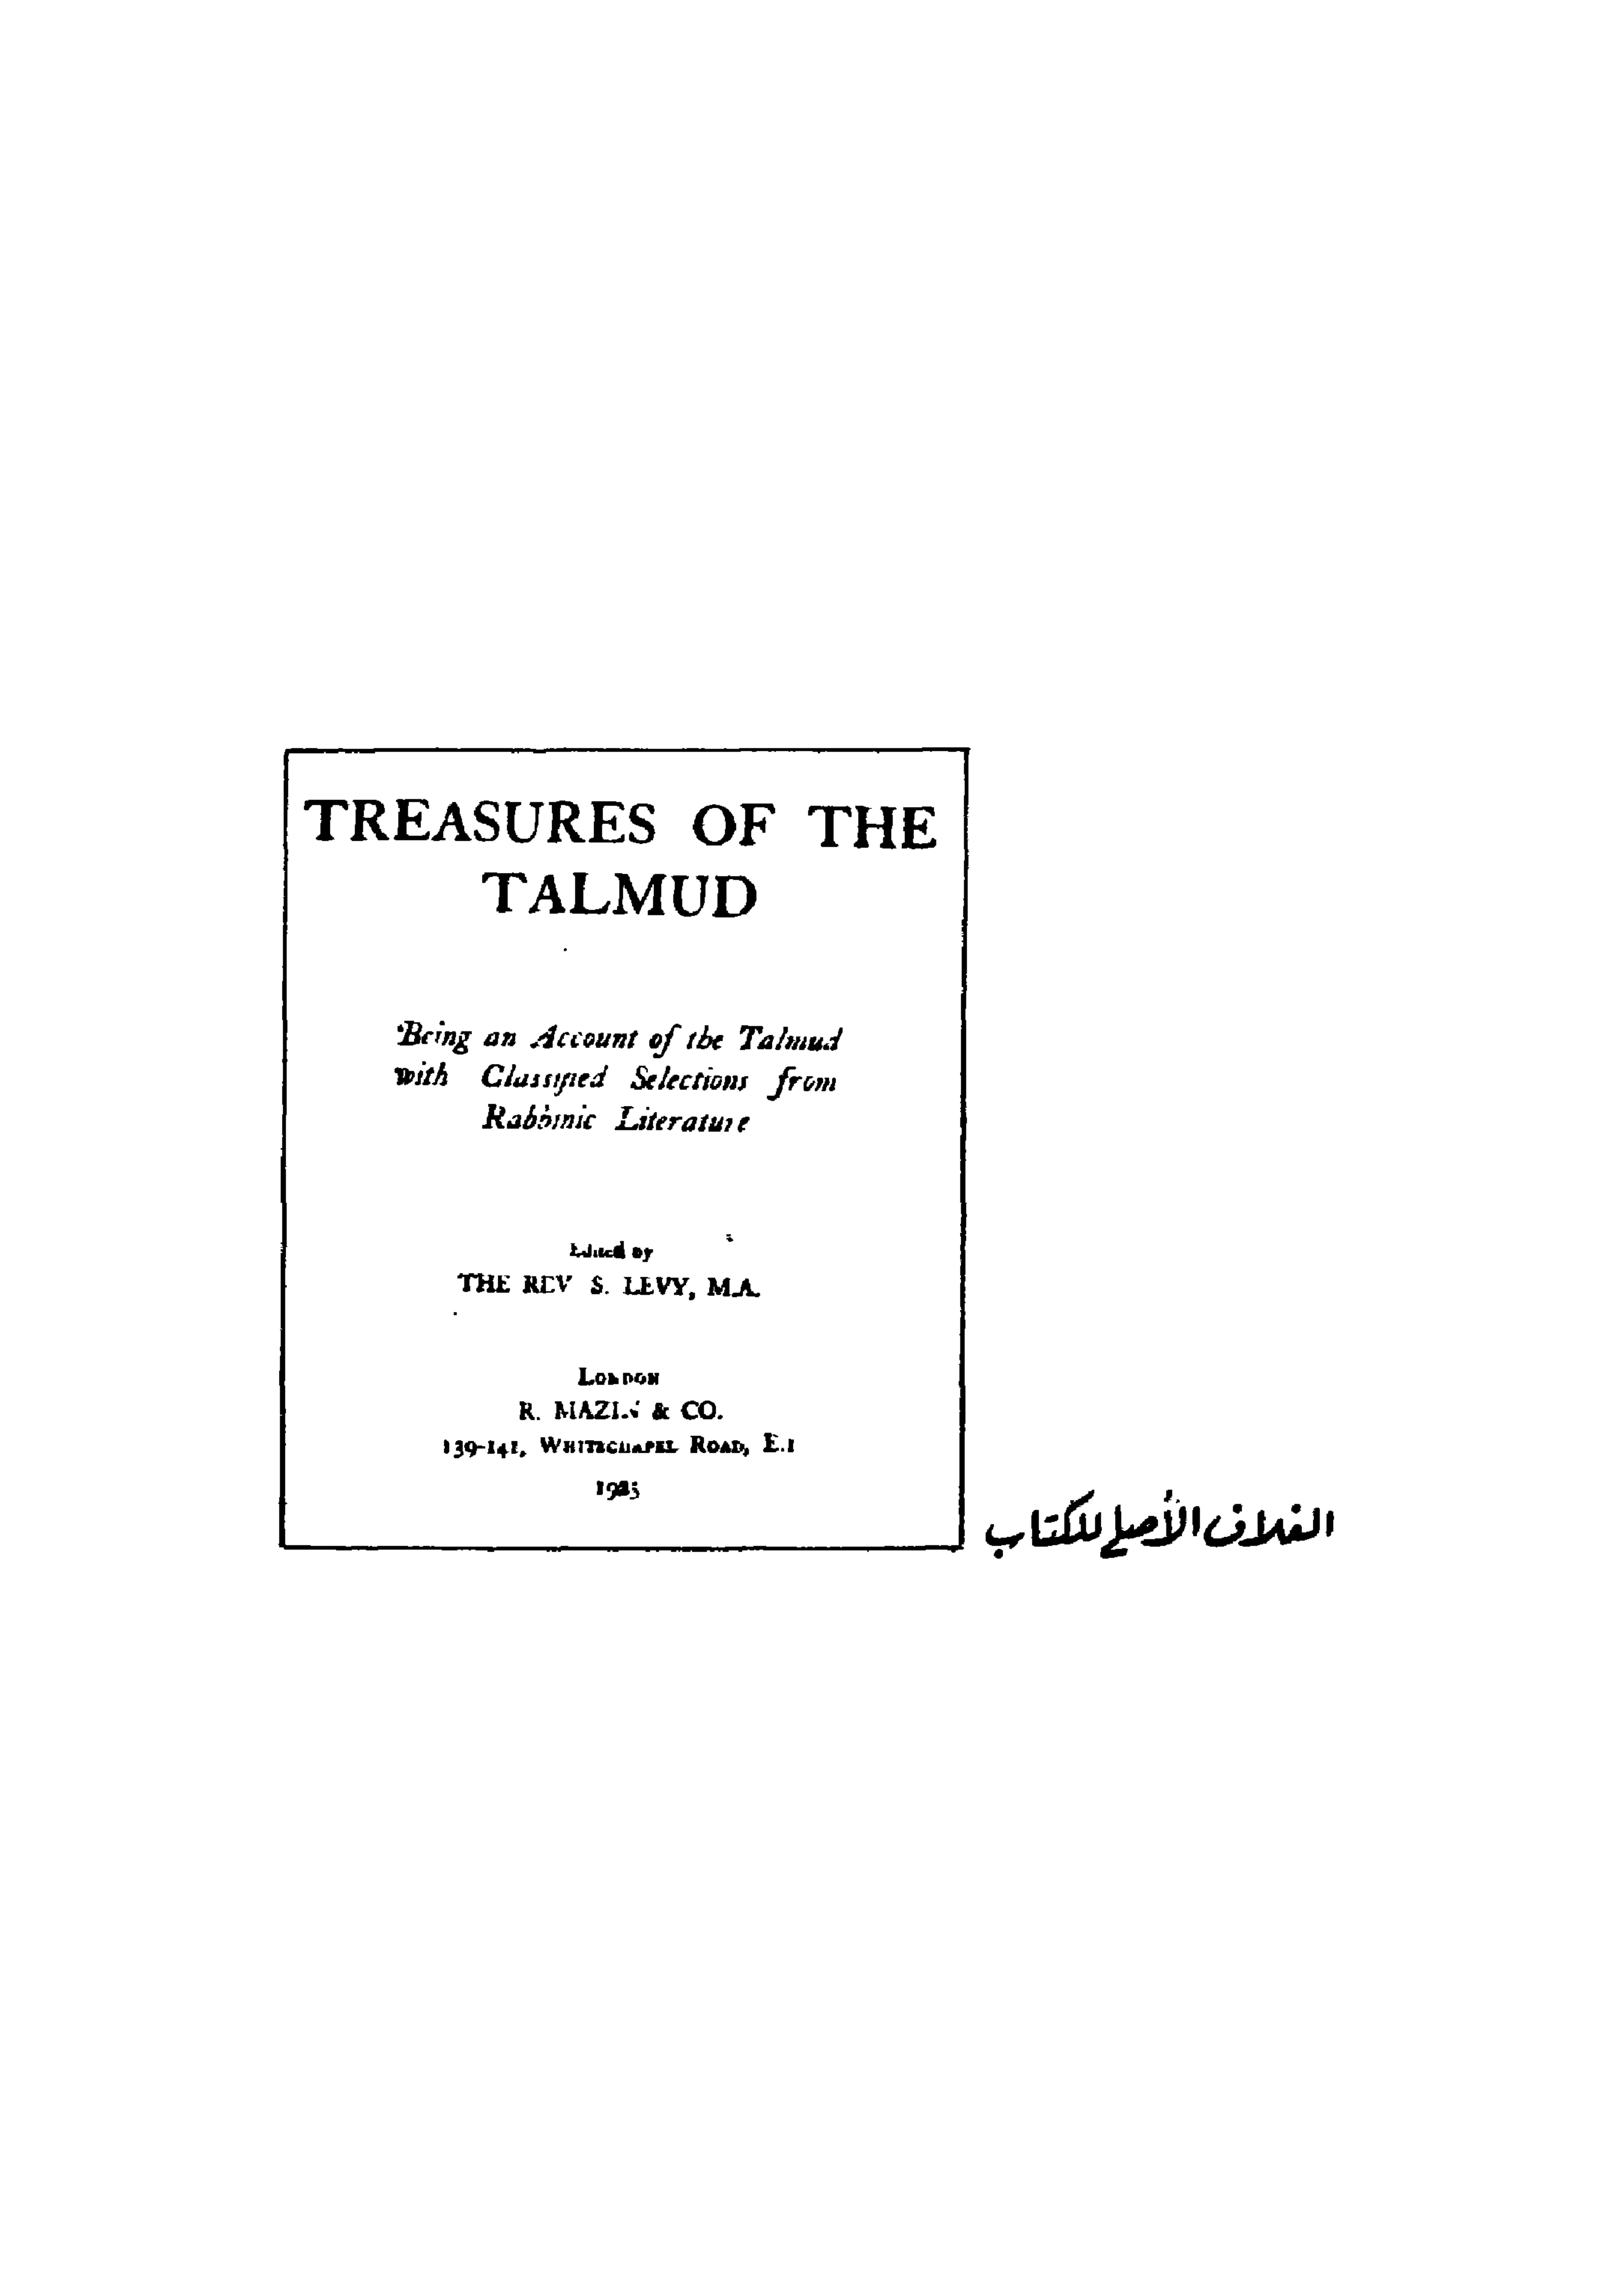 TREASURES OF THE
TALMUD
Being an Account of the Talmud
with Classified Selections from
Rabbinic Literature
Edited by
THE REV S. LEVY, M.A.
LONDON
R. MAZIN & CO.
139-141, WHITECHAPEL ROAD, E.1
الغلاف الأصلي للكتاب